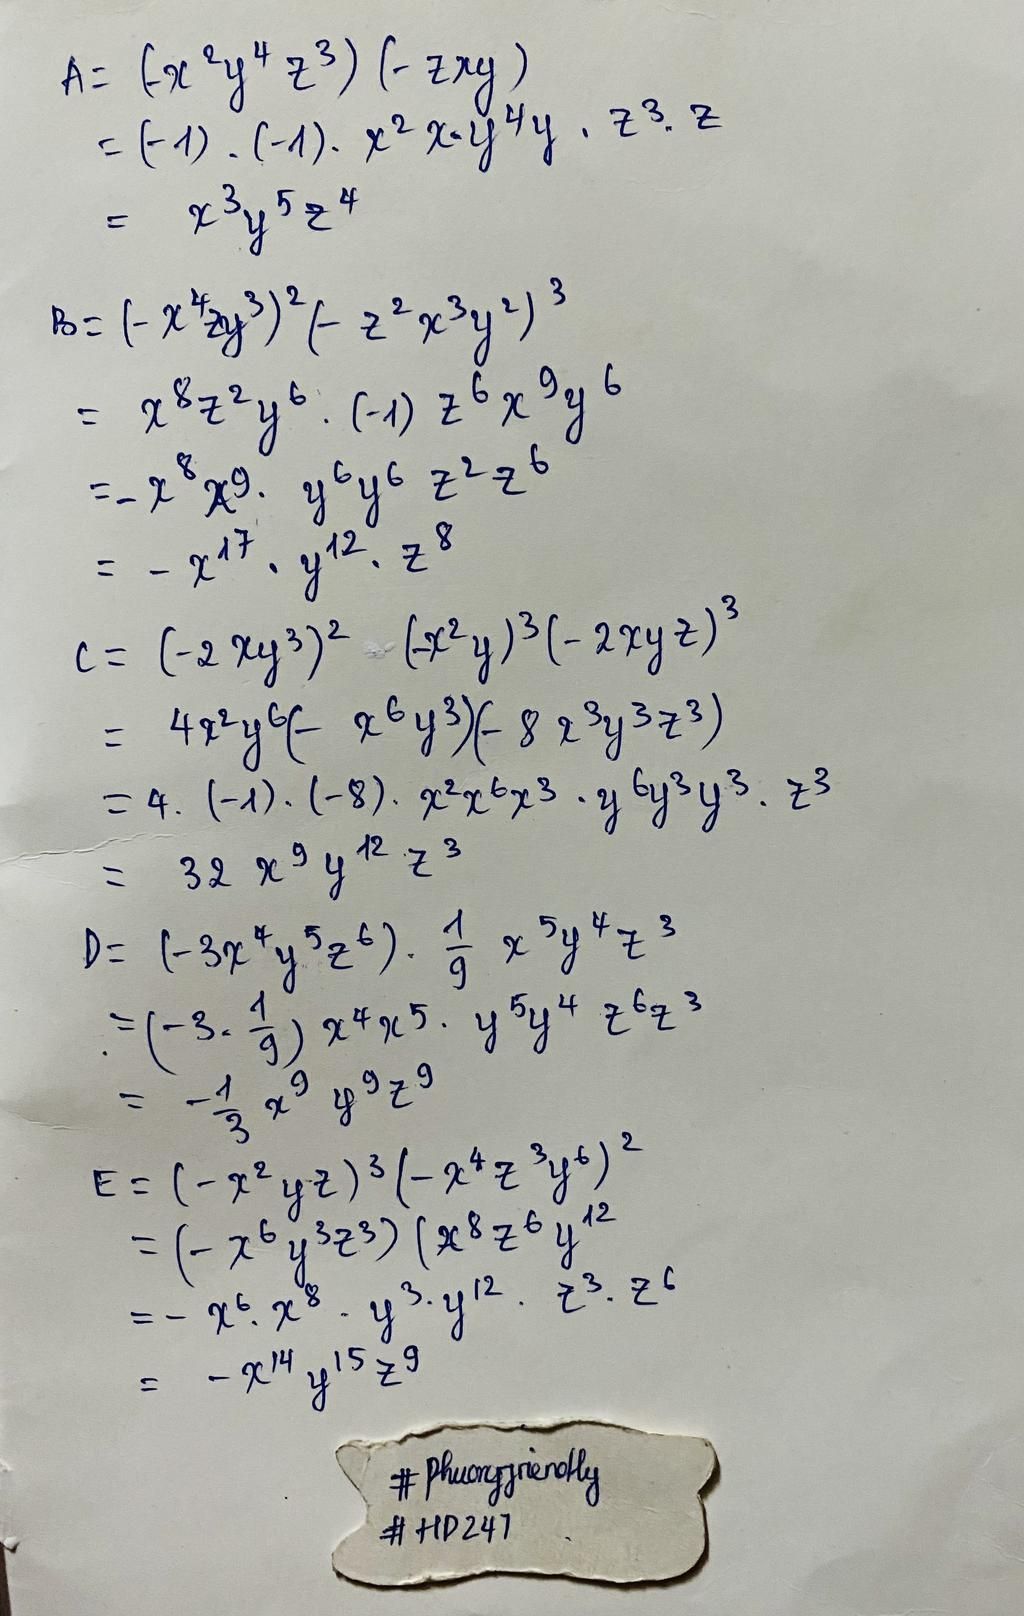 A= (-x²y⁴z³)(-zxy)
= (-1).(-1). x²x.y⁴y . z³.z
= x³y⁵z⁴
B= (-x⁴zy³)²(-z²x³y²)³
= x⁸z²y⁶.(-1) z⁶x⁹y⁶
=-x⁸x⁹. y⁶y⁶ z²z⁶
= -x¹⁷.y¹².z⁸
C= (-2xy³)² (-x²y)³(-2xyz)³
= 4x²y⁶(-x⁶y³)(-8x³y³z³)
= 4.(-1).(-8). x²x⁶x³.y⁶y³y³.z³
= 32 x⁹y¹²z³
D= (-3x⁴y⁵z⁶). 1/9 x⁵y⁴z³
=(-3.1/9) x⁴x⁵. y⁵y⁴ z⁶z³
= -1/3 x⁹y⁹z⁹
E= (-x²yz)³(-x⁴z³y⁶)²
=(-x⁶y³z³)(x⁸z⁶y¹²
=-x⁶.x⁸.y³.y¹². z³.z⁶
= -x¹⁴y¹⁵z⁹
#Phuongfriendly
#HD247